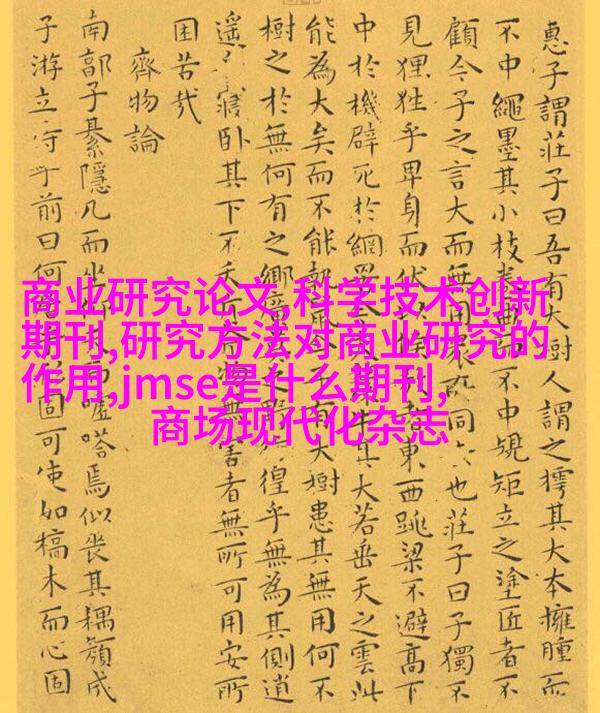 惠子謂莊子曰吾有大樹人謂之樗其大本擁腫而
不中繩墨其小枝卷曲而不中規矩立之塗匠者不
顧今子之言大而無用眾所同也莊子曰子獨不
見狸狌乎卑身而伏以候者東西跳梁不避高下
中於機辟死於網罟其大若垂天之雲此
能為大矣而不能執鼠子有大樹患其無用何不
樹之於無何有之鄉廣莫之野徨乎無為其側逍
遥寢卧其下不夭物無害者無所可用安所
困苦哉
齊物論
南郭子綦隱几而坐而噓嗒焉似喪其耦顏成
子游立侍乎前曰何居形固可使如槁木而心固
商业研究论文,科学技术创新
期刊,研究方法对商业研究的
作用,jmse是什么期刊,
商场现代化杂志